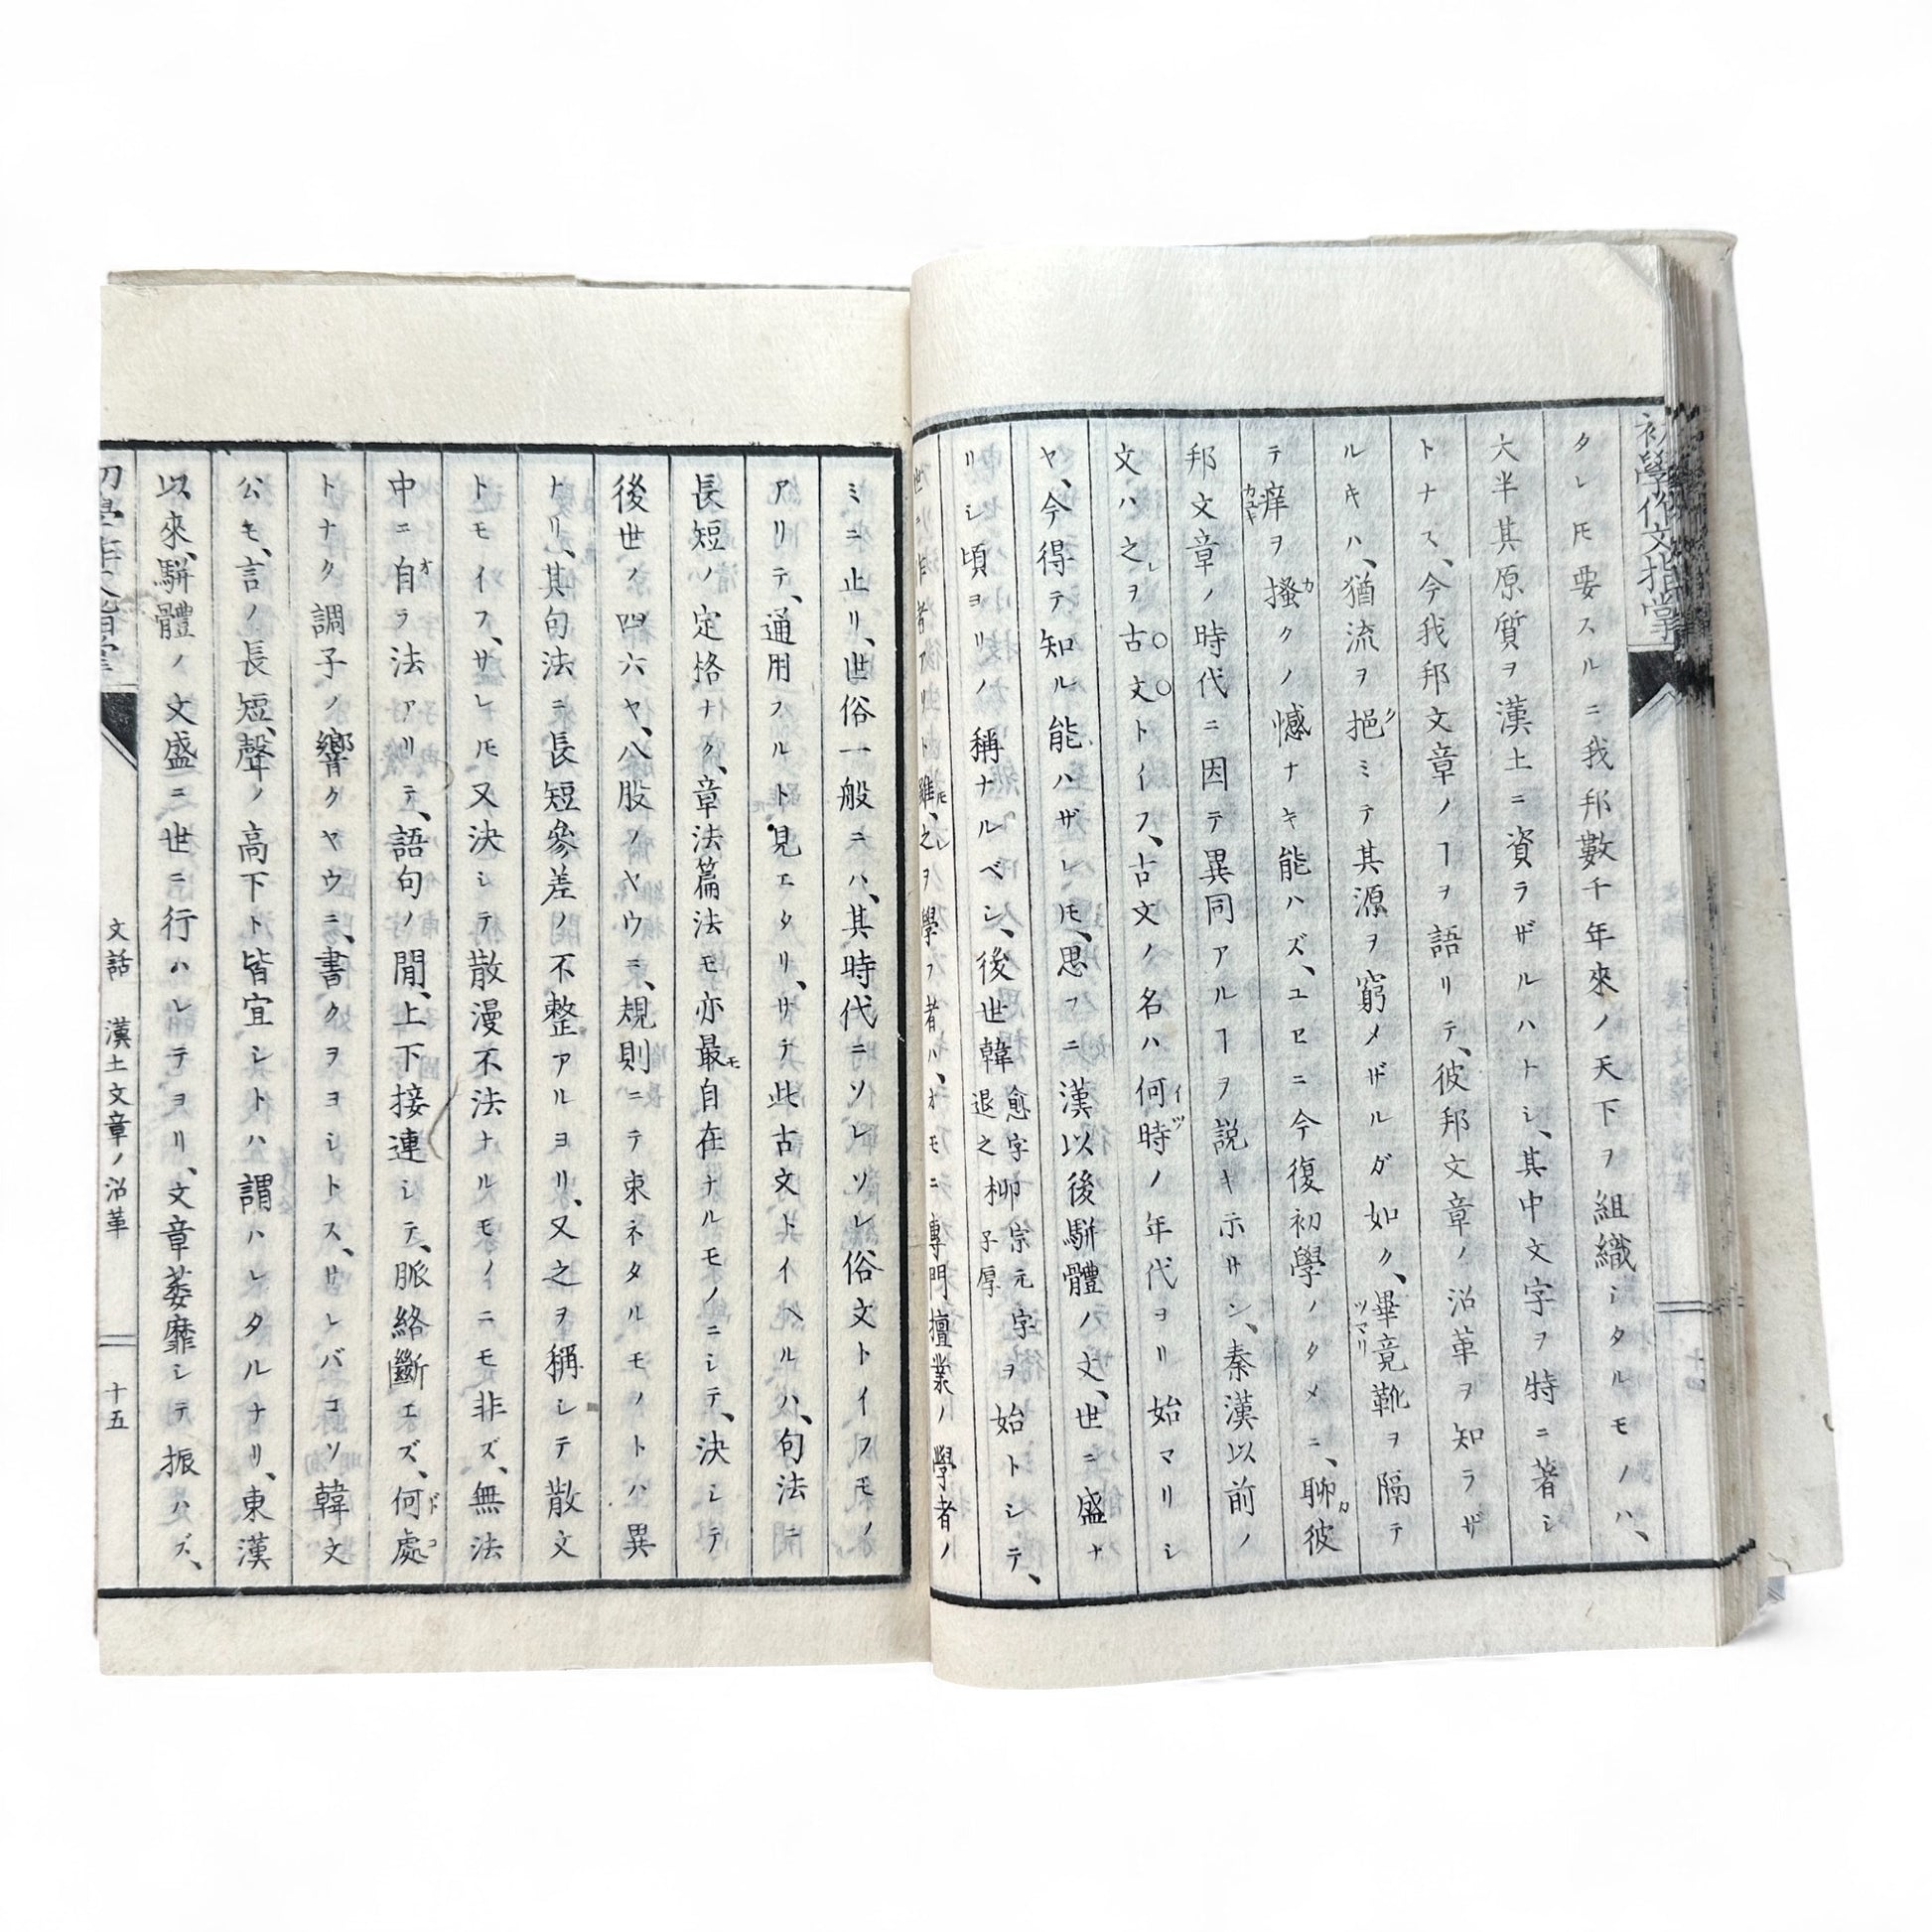 初學作文指掌
タレ𪜈要スルニ我邦數千年來ノ天下ヲ組織シタルモノハ、
大半其原質ヲ漢土ニ資ラザルハトナシ、其中文字ヲ特ニ著シ
トナス、今我邦文章ノヿヲ語リテ、彼邦文章ノ沿革ヲ知ラザ
ルキハ、猶流ヲ挹ミテ其源ヲ窮メザルガ如ク、畢竟靴ヲ隔テ
テ痒ヲ搔クノ憾ナキ能ハズ、ユヱニ今復初學ノタメニ、聊彼
邦文章ノ時代ニ因テ異同アルヿヲ説キ示サン、秦漢以前ノ
文ハ之ヲ古文トイフ、古文ノ名ハ何時ノ年代ヨリ始マリシ
ヤ、今得テ知ル能ハザレ𪜈、思フニ漢以後駢體ノ文、世ニ盛ナ
リシ頃ヨリノ稱ナルベシ、後世韓愈字退之柳宗元字子厚ヲ始トシテ、
作者アリト雖𪜈、之ヲ學フ者ハ、オモニ專門擅業ノ學者ノ
ミニ止リ、世俗一般ニハ、其時代ニソレソレ俗文トイフモノ
アリテ、通用フルト見エタリ、サテ此古文トイヘルハ、句法ニ
長短ノ定格ナク、章法篇法モ亦最自在ナルモノニシテ、決シテ
後世ノ四六ヤ、八股ノヤウニ、規則ニテ束ネタルモノトハ異
ナリ、其句法ニ長短參差ノ不整アルヨリ、又之ヲ稱シテ散文
トモイフ、サレ𪜈又決シテ散漫不法ナルモノニモ非ズ、無法
中ニ自ラ法アリテ、語句ノ閒、上下接連シテ、脈絡斷エズ、何處
トナク調子ノ響クヤウニ、書クヲヨシトス、サレバコソ韓文
公モ、言ノ長短、聲ノ高下ト皆宜シトハ謂ハレタルナリ、東漢
以來、駢體ノ文盛ニ世ニ行ハレテヨリ、文章萎靡シテ振ハズ、
文話　漢土文章ノ沿革
十五